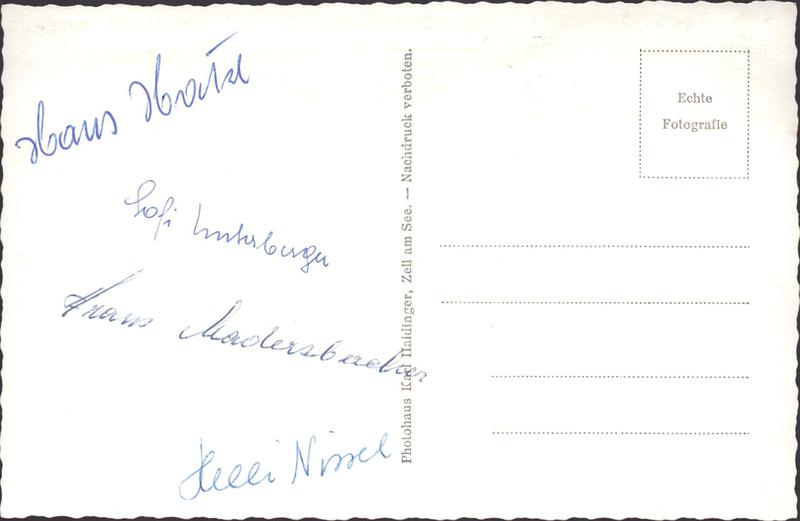 Hans
Sofi Unterberger
Franz Madersbacher
Helli Nissel
Photohaus Karl Haidinger, Zell am See. — Nachdruck verboten.
Echte
Fotografie